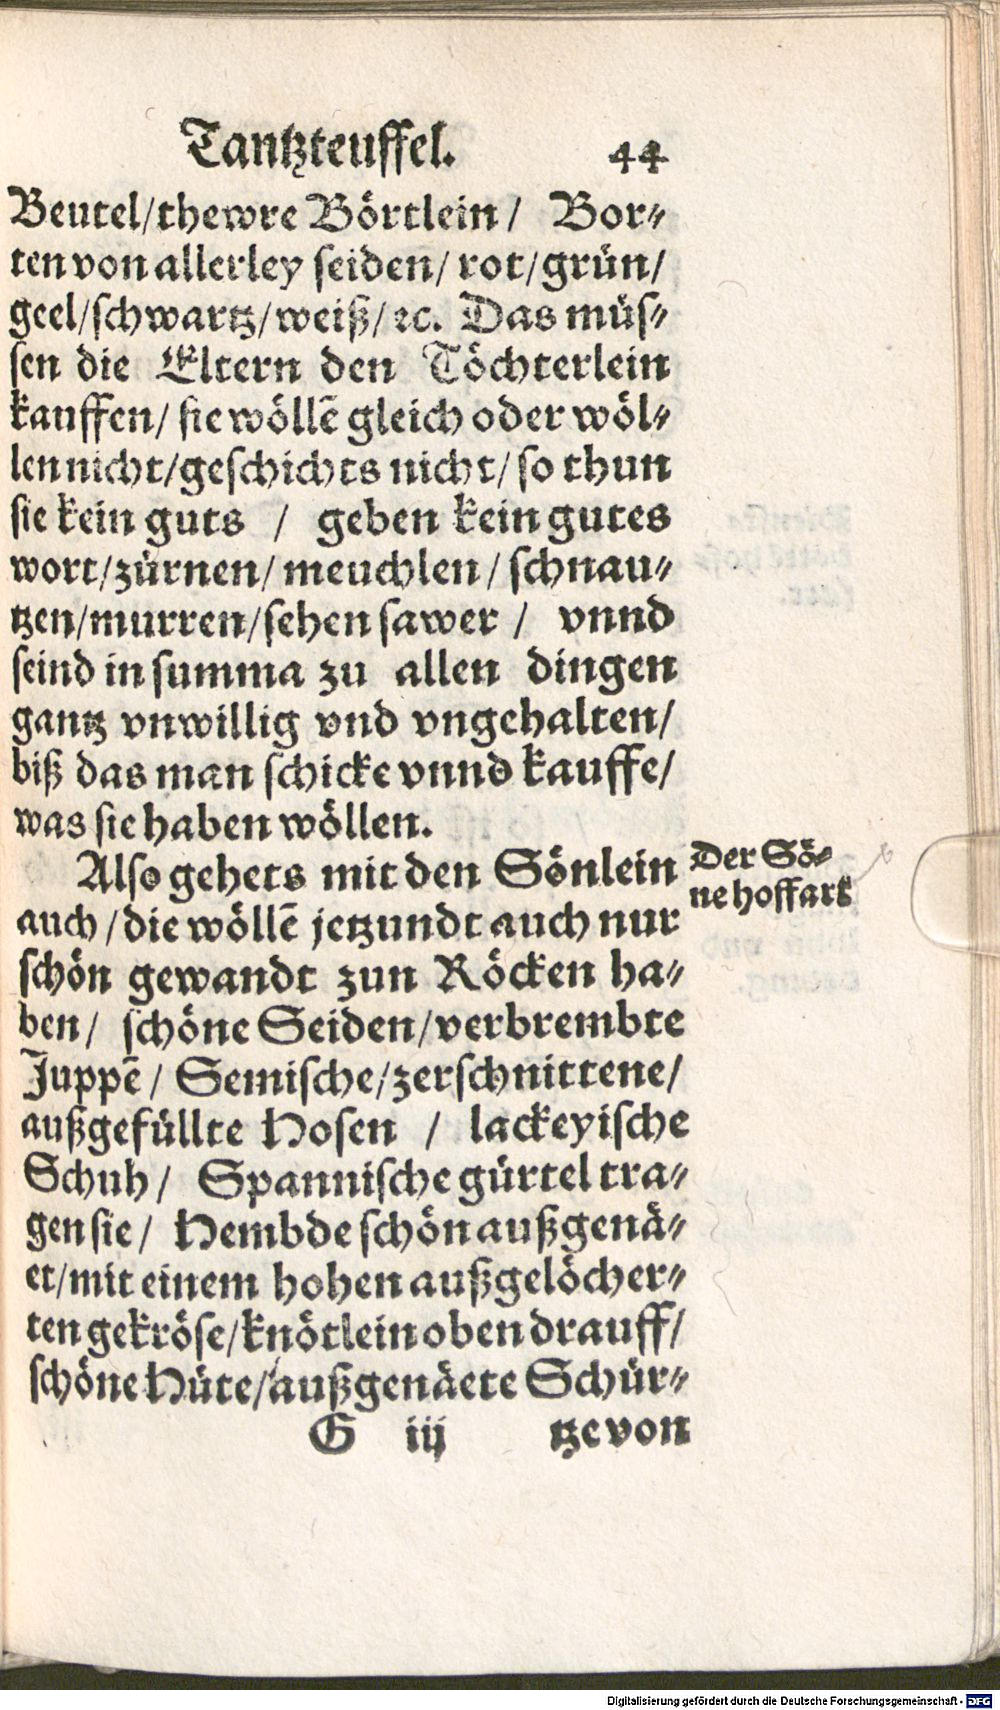 Tantzteuffel. 44
Beutel/thewre Börtlein/ Bor⸗
ten von allerley seiden/ rot/grün/
geel/schwartz/weiß/ꝛc. Das müs⸗
sen die Eltern den Töchterlein
kauffen/ sie wöllẽ gleich oder wöl⸗
len nicht/geschichts nicht/ so thun
sie kein guts / geben kein gutes
wort/zürnen/meuchlen/schnau⸗
tzen/murren/sehen sawer / vnnd
seind in summa zu allen dingen
gantz vnwillig vnd vngehalten/
biß das man schicke vnnd kauffe/
was sie haben wöllen.
Also gehets mit den Sönlein
Der Sö⸗
ne hoffart
auch/die wöllẽ jetzundt auch nur
schön gewandt zun Röcken ha⸗
ben/ schöne Seiden/verbrembte
Juppẽ/ Semische/zerschnittene/
außgefüllte Hosen / lackeyische
Schuh/ Spannische gürtel tra⸗
gen sie/ Hembde schön außgenä⸗
et/mit einem hohen außgelöcher⸗
ten gekröse/knötlein oben drauff/
schöne Hüte/außgenäete Schür⸗
G iij tze von
Digitalisierung gefördert durch die Deutsche Forschungsgemeinschaft - DFG